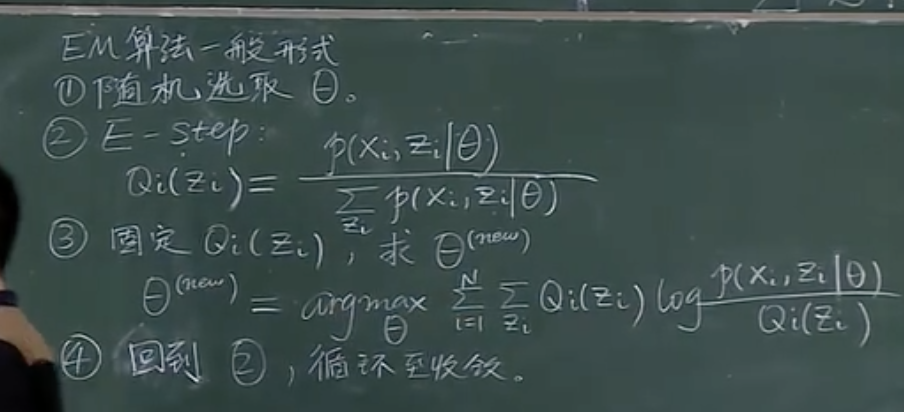 EM算法一般形式
①随机选取 θ。
② E-step:
Qi(Zi) = p(Xi, Zi|θ) / ∑_{Zi} p(Xi, Zi|θ)
③ 固定 Qi(Zi), 求 θ^(new)
θ^(new) = argmax_θ ∑_{i=1}^{N} ∑_{Zi} Qi(Zi) log p(Xi, Zi|θ) / Qi(Zi)
④ 回到 ②, 循环至收敛。